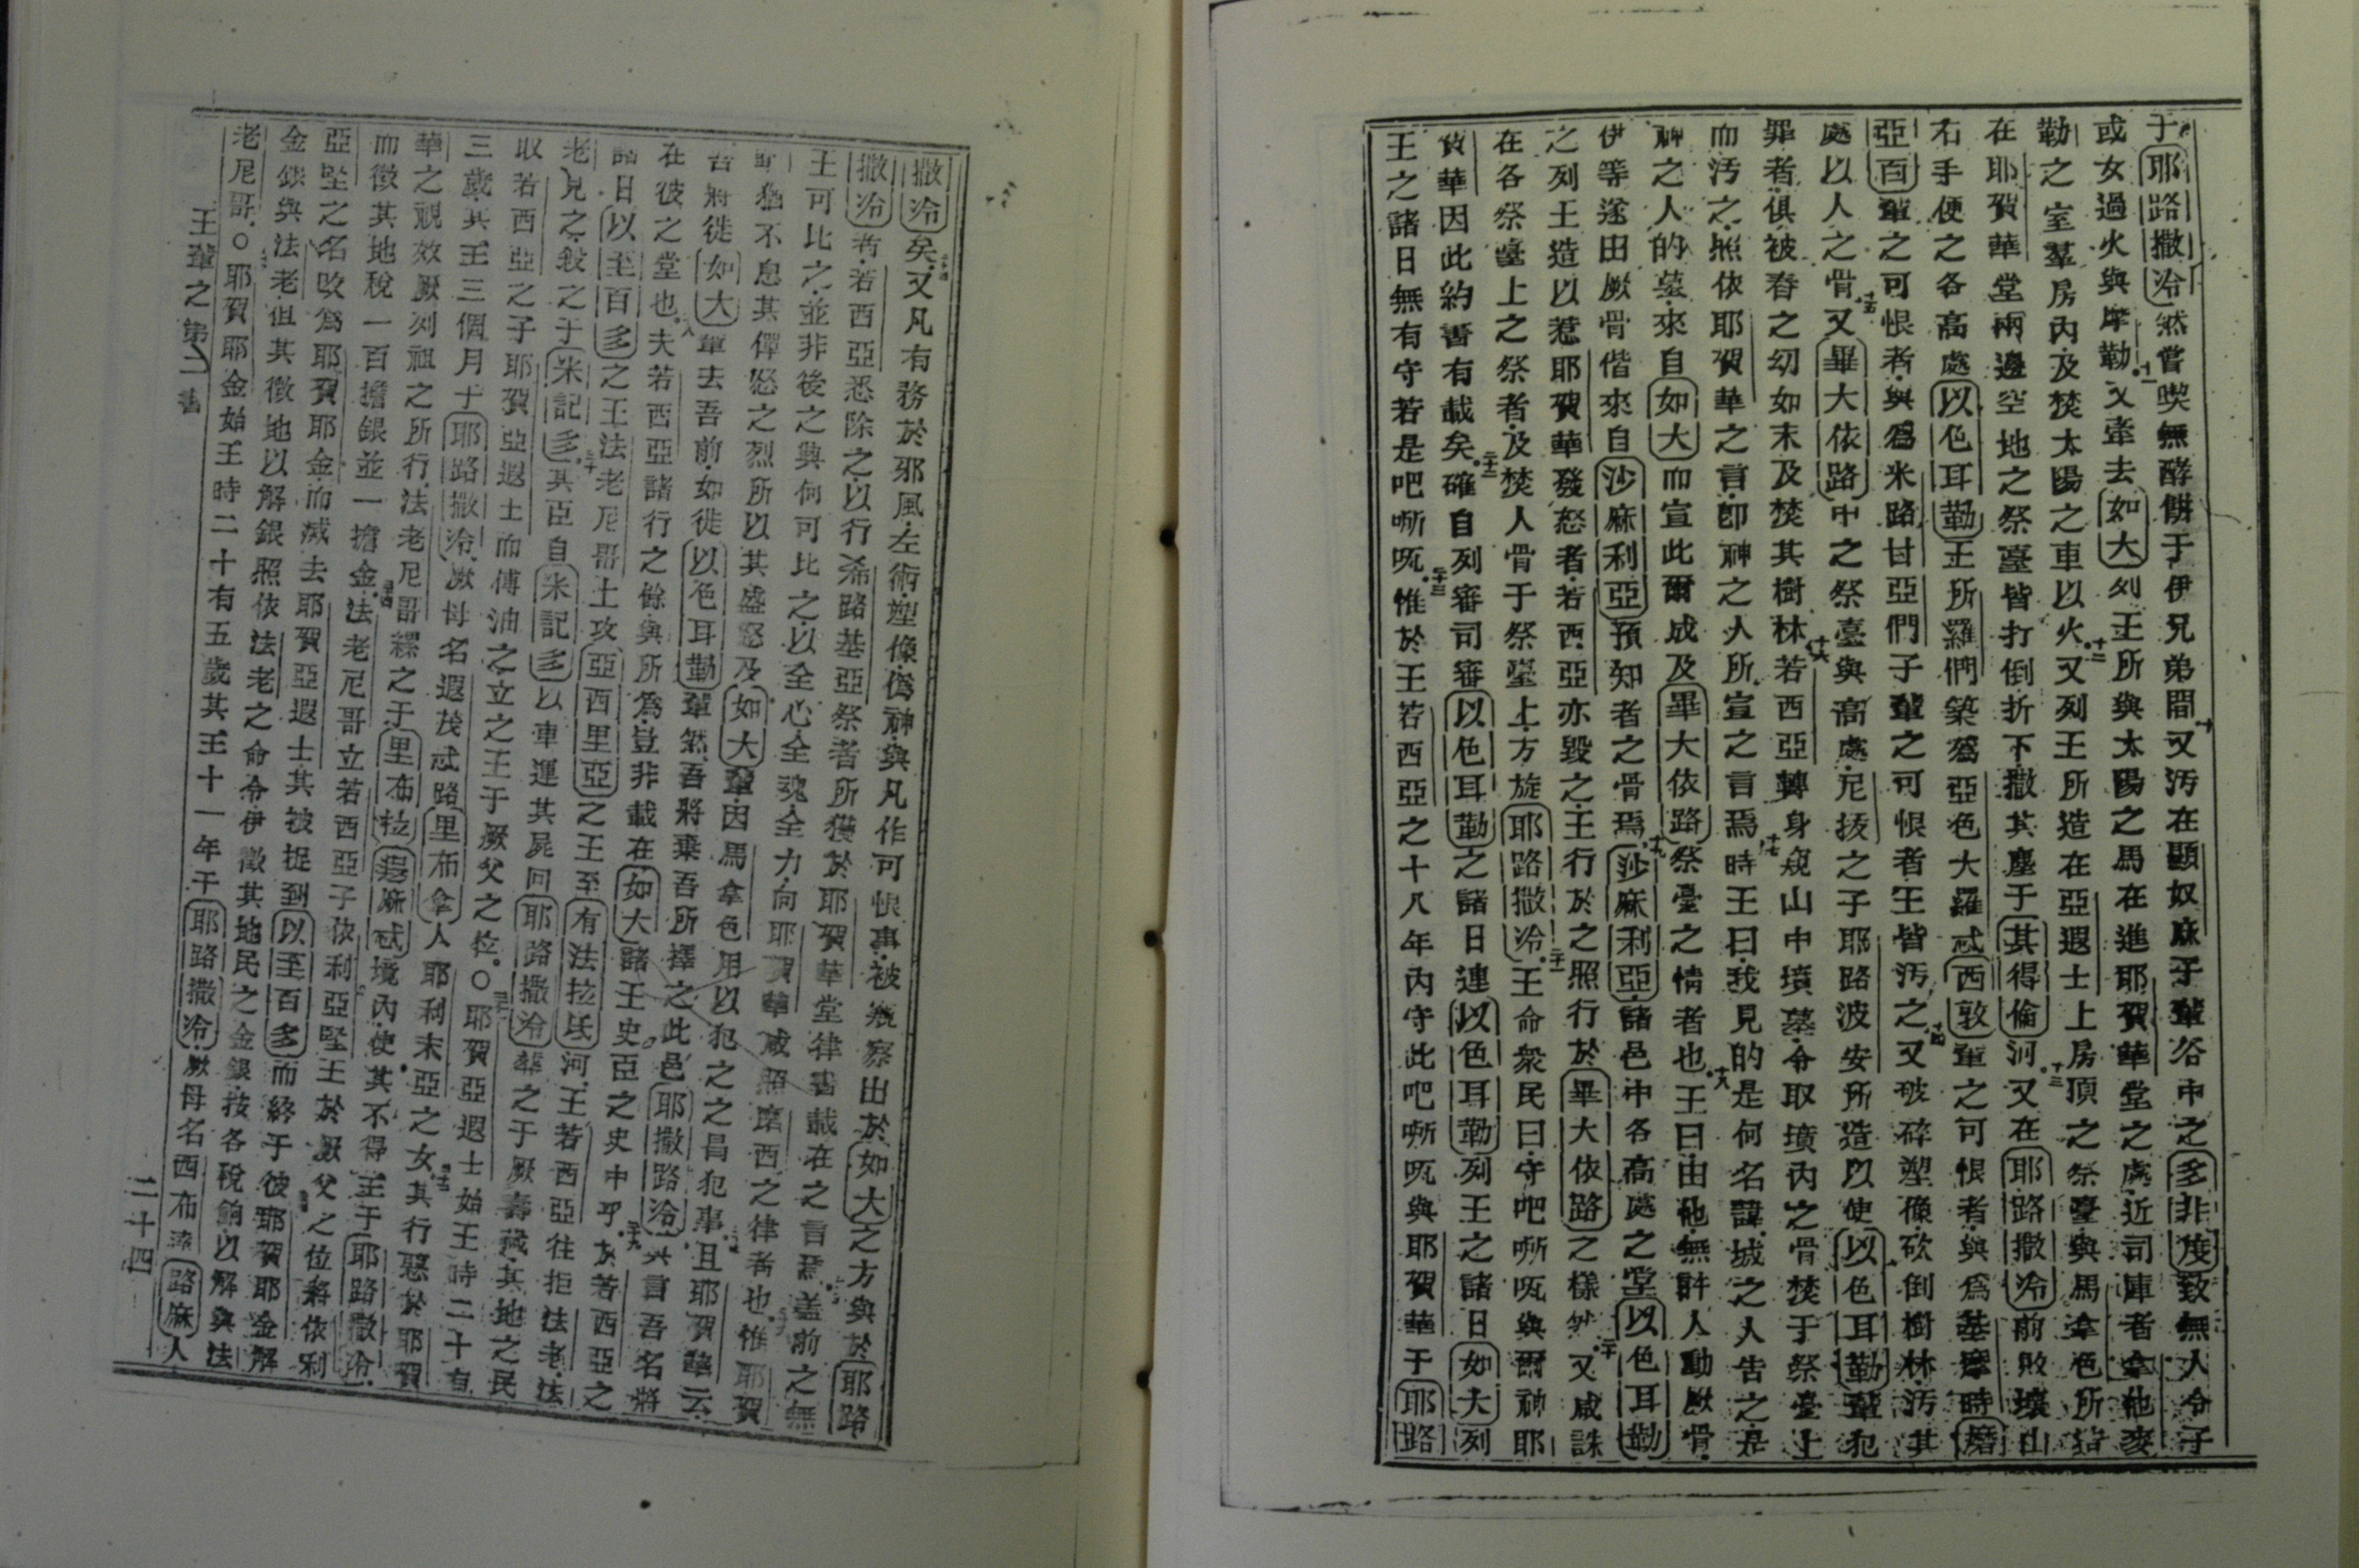 于耶路撒冷然嘗喫無酵餅于伊兄弟間十又汚在顯奴麻子輩谷中之多非度致無人令子
或女過火與摩勒十一又牽去如大列王所與太陽之馬在進耶賀華堂之處近司庫者拿他麥
勒之室羣房內及焚太陽之車以火十二又列王所造在亞遐士上房頂之祭臺與馬拿色所造
在耶賀華堂兩邊空地之祭臺皆打倒折下撒其塵于其得倫河十三又在耶路撒冷前敗壞山
右手便之各高處以色耳勒王所羅們築爲亞色大羅忒西敦輩之可恨者與爲基摩時磨
亞百輩之可恨者與爲米路甘亞們子輩之可恨者王皆汚之十四又破碎塑像砍倒樹林汚其
處以人之骨十五又畢大依路中之祭臺與高處尼拔之子耶路波安所造以使以色耳勒輩犯
罪者俱被舂之幼如末及焚其樹林十六若西亞轉身窺山中墳墓令取墳內之骨焚于祭臺上
而汚之照依耶賀華之言卽神之人所宣之言焉十七時王曰我見的是何名諱城之人告之是
神之人的墓來自如大而宣此爾成及畢大依路祭臺之情者也十八王曰由他無許人動厥骨
伊等遂由厥骨偕來自沙麻利亞預知者之骨焉十九沙麻利亞諸邑中各高處之堂以色耳勒
之列王造以惹耶賀華發怒者若西亞亦毀之王行於之照行於畢大依路之樣然二十又咸誅
在各祭臺上之祭者及焚人骨于祭臺上方旋耶路撒冷二十一王命衆民曰守吧㘔㕸與爾神耶
賀華因此約書有載矣二十二確自列審司審以色耳勒之諸日連以色耳勒列王之諸日如大列
王之諸日無有守若是吧㘔㕸二十三惟於王若西亞之十八年內守此吧㘔㕸與耶賀華于耶路
撒冷矣二十四又凡有務於邪風左術塑像僞神與凡作可恨事被窺察出於如大之方與於耶路
撒冷者若西亞悉除之以行希路基亞祭者所獲於耶賀華堂律書載在之言焉二十五蓋前之無
王可比之並非後之與何可比之以全心全魂全力向耶賀華咸照摩西之律者也二十六惟耶賀
華猶不息其俾怒之烈所以其盛怒及如大輩因馬拿色用以犯之之昌犯事二十七且耶賀華云
吾將徙如大輩去吾前如徙以色耳勒輩然吾將棄吾所擇之此邑耶撒路冷與言吾名將
在彼之堂也二十八夫若西亞諸行之餘與所爲豈非載在如大諸王史亞之史中乎二十九於若西亞之
諸日以至百多之王法老尼哥上攻亞西里亞之王至有法拉氐河王若西亞往拒法老法
老見之殺之于米記多三十其臣自米記多以車運其屍回耶路撒冷葬之于厥壽藏其地之民
取若西亞之子耶賀亞遐士而傅油之立之王于厥父之位○三十一耶賀亞遐士始王時二十有
三歲其王三個月于耶路撒冷厥母名遐茂忒路里布拿人耶利末亞之女三十二其行惡於耶賀
華之視效厥列祖之所行法老尼哥縲之于里布拉遐麻忒境內使其不得王于耶路撒冷
而徵其地稅一百擔銀並一擔金三十四法老尼哥立若西亞子依利亞堅王於厥父之位將依利
亞堅之名改爲耶賀耶金而滅去耶賀亞遐士其被捉到以至百多而終于彼耶賀耶金解
金銀與法老徂其徵地以解銀照依法老之命令伊徵其地民之金銀按各稅餉以解與法
老尼哥○耶賀耶金始王時二十有五歲其王十一年于耶路撒冷厥母名西布大路麻人
王輩之第二書　二十四